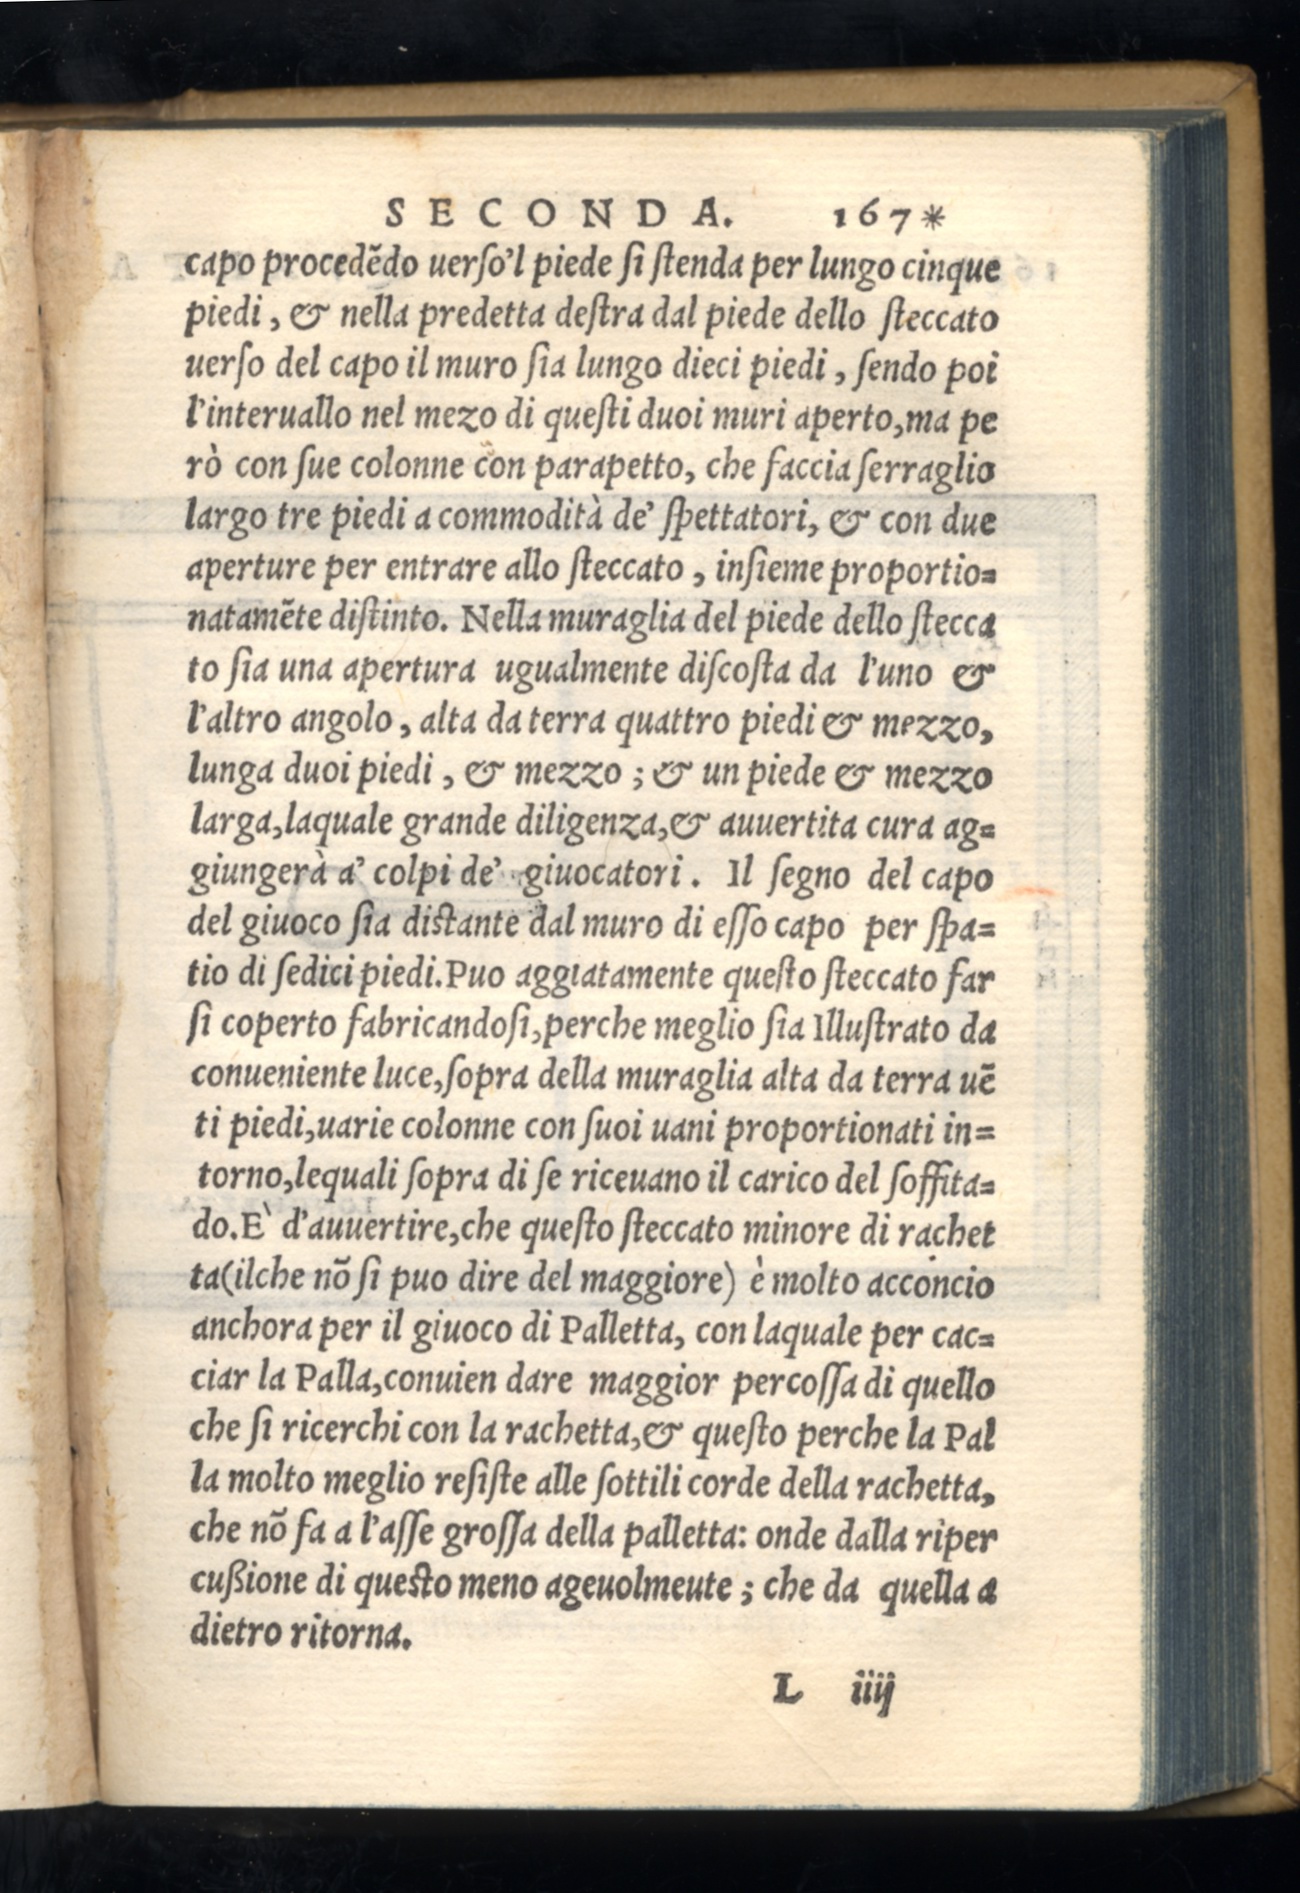 SECONDA. 167*
capo procedẽdo uerſo'l piede ſi ſtenda per lungo cinque
piedi, & nella predetta deſtra dal piede dello ſteccato
uerſo del capo il muro ſia lungo dieci piedi, ſendo poi
l'interuallo nel mezo di queſti duoi muri aperto, ma pe
rò con ſue colonne con parapetto, che faccia ſerraglio
largo tre piedi a commodità de' ſpettatori, & con due
aperture per entrare allo ſteccato, inſieme proportio=
natamẽte diſtinto. Nella muraglia del piede dello ſtecca
to ſia una apertura ugualmente diſcoſta da l'uno &
l'altro angolo, alta da terra quattro piedi & mezzo,
lunga duoi piedi, & mezzo; & un piede & mezzo
larga, laquale grande diligenza, & auuertita cura ag=
giungerà a' colpi de' giuocatori. Il ſegno del capo
del giuoco ſia diſtante dal muro di eſſo capo per ſpa=
tio di ſedici piedi. Puo aggiatamente queſto ſteccato far
ſi coperto fabricandoſi, perche meglio ſia Illuſtrato da
conueniente luce, ſopra della muraglia alta da terra uẽ
ti piedi, uarie colonne con ſuoi uani proportionati in=
torno, lequali ſopra di ſe riceuano il carico del ſoffita=
do. E' d'auuertire, che queſto ſteccato minore di rachet
ta (ilche nõ ſi puo dire del maggiore) è molto acconcio
anchora per il giuoco di Palletta, con laquale per cac=
ciar la Palla, conuien dare maggior percoſſa di quello
che ſi ricerchi con la rachetta, & queſto perche la Pal
la molto meglio reſiſte alle ſottili corde della rachetta,
che nõ fa a l'aſſe groſſa della palletta: onde dalla riper
cußione di queſto meno ageuolmeute; che da quella a
dietro ritorna.
L iiij